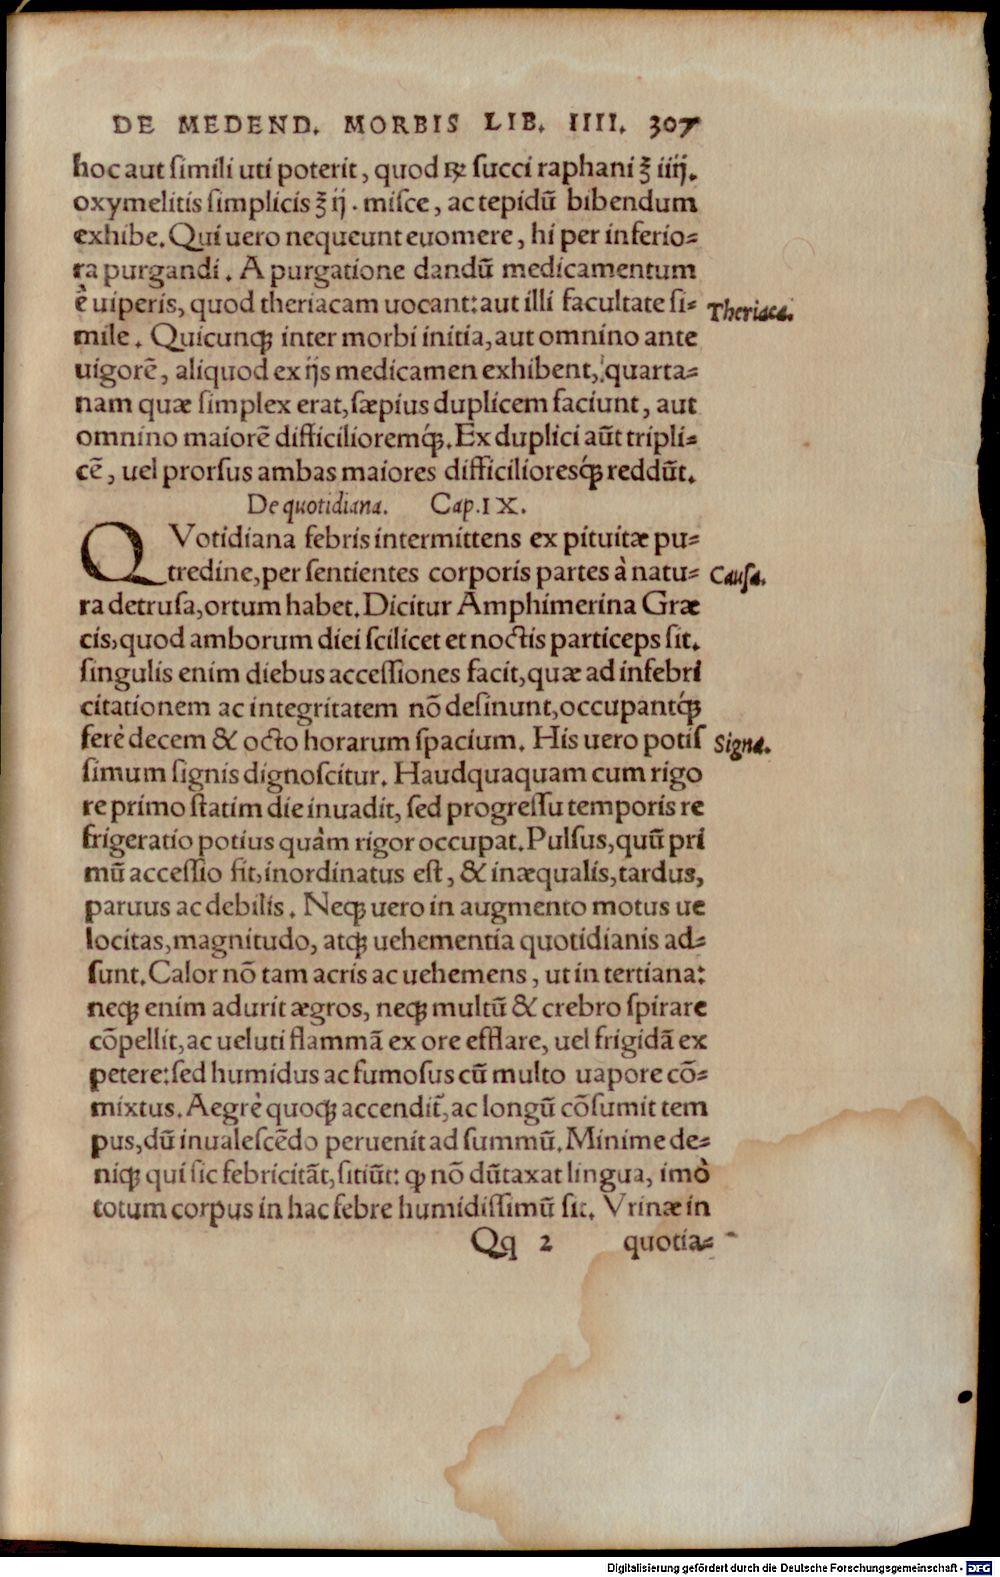 DE MEDEND. MORBIS LIB. IIII. 307
hoc aut ſimili uti poterit, quod ℞ ſucci raphani ℥ iiij.
oxymelitis ſimplicis ℥ ij. miſce, ac tepidũ bibendum
exhibe. Qui uero nequeunt euomere, hi per inferio⸗
ra purgandi. A purgatione dandũ medicamentum
è uiperis, quod theriacam uocant: aut illi facultate ſi⸗
Theriaca.
mile. Quicunqꝫ inter morbi initia, aut omnino ante
uigorẽ, aliquod ex ijs medicamen exhibent, quarta⸗
nam quæ ſimplex erat, ſæpius duplicem faciunt, aut
omnino maiorẽ difficilioremq́ꝫ. Ex duplici aũt tripli⸗
cẽ, uel prorſus ambas maiores difficilioresq́ꝫ reddũt.
De quotidiana. Cap. IX.
QVotidiana febris intermittens ex pituitæ pu⸗
tredine, per ſentientes corporis partes à natu⸗
Cauſa.
ra detruſa, ortum habet. Dicitur Amphimerina Græ
cis, quod amborum diei ſcilicet et noctis particeps ſit.
ſingulis enim diebus acceſſiones facit, quæ ad infebri
citationem ac integritatem nõ deſinunt, occupantq́ꝫ
ferè decem & octo horarum ſpacium. His uero potiſ
Signa.
ſimum ſignis dignoſcitur. Haudquaquam cum rigo
re primo ſtatim die inuadit, ſed progreſſu temporis re
frigeratio potius quàm rigor occupat. Pulſus, quũ pri
mũ acceſſio fit, inordinatus eſt, & inæqualis, tardus,
paruus ac debilis. Neqꝫ uero in augmento motus ue
locitas, magnitudo, atqꝫ uehementia quotidianis ad⸗
ſunt. Calor nõ tam acris ac uehemens, ut in tertiana:
neqꝫ enim adurit ægros, neqꝫ multũ & crebro ſpirare
cõpellit, ac ueluti flammã ex ore efflare, uel frigidã ex
petere: ſed humidus ac fumoſus cũ multo uapore cõ⸗
mixtus. Aegrè quoqꝫ accendit̃, ac longũ cõſumit tem
pus, dũ inualeſcẽdo peruenit ad ſummũ. Minime de⸗
niqꝫ qui ſic febricitãt, ſitiũt: ꝙ nõ dũtaxat lingua, imò
totum corpus in hac febre humidiſſimũ ſit. Vrinæ in
Qq 2 quotia⸗
Digitalisierung gefördert durch die Deutsche Forschungsgemeinschaft - DFG